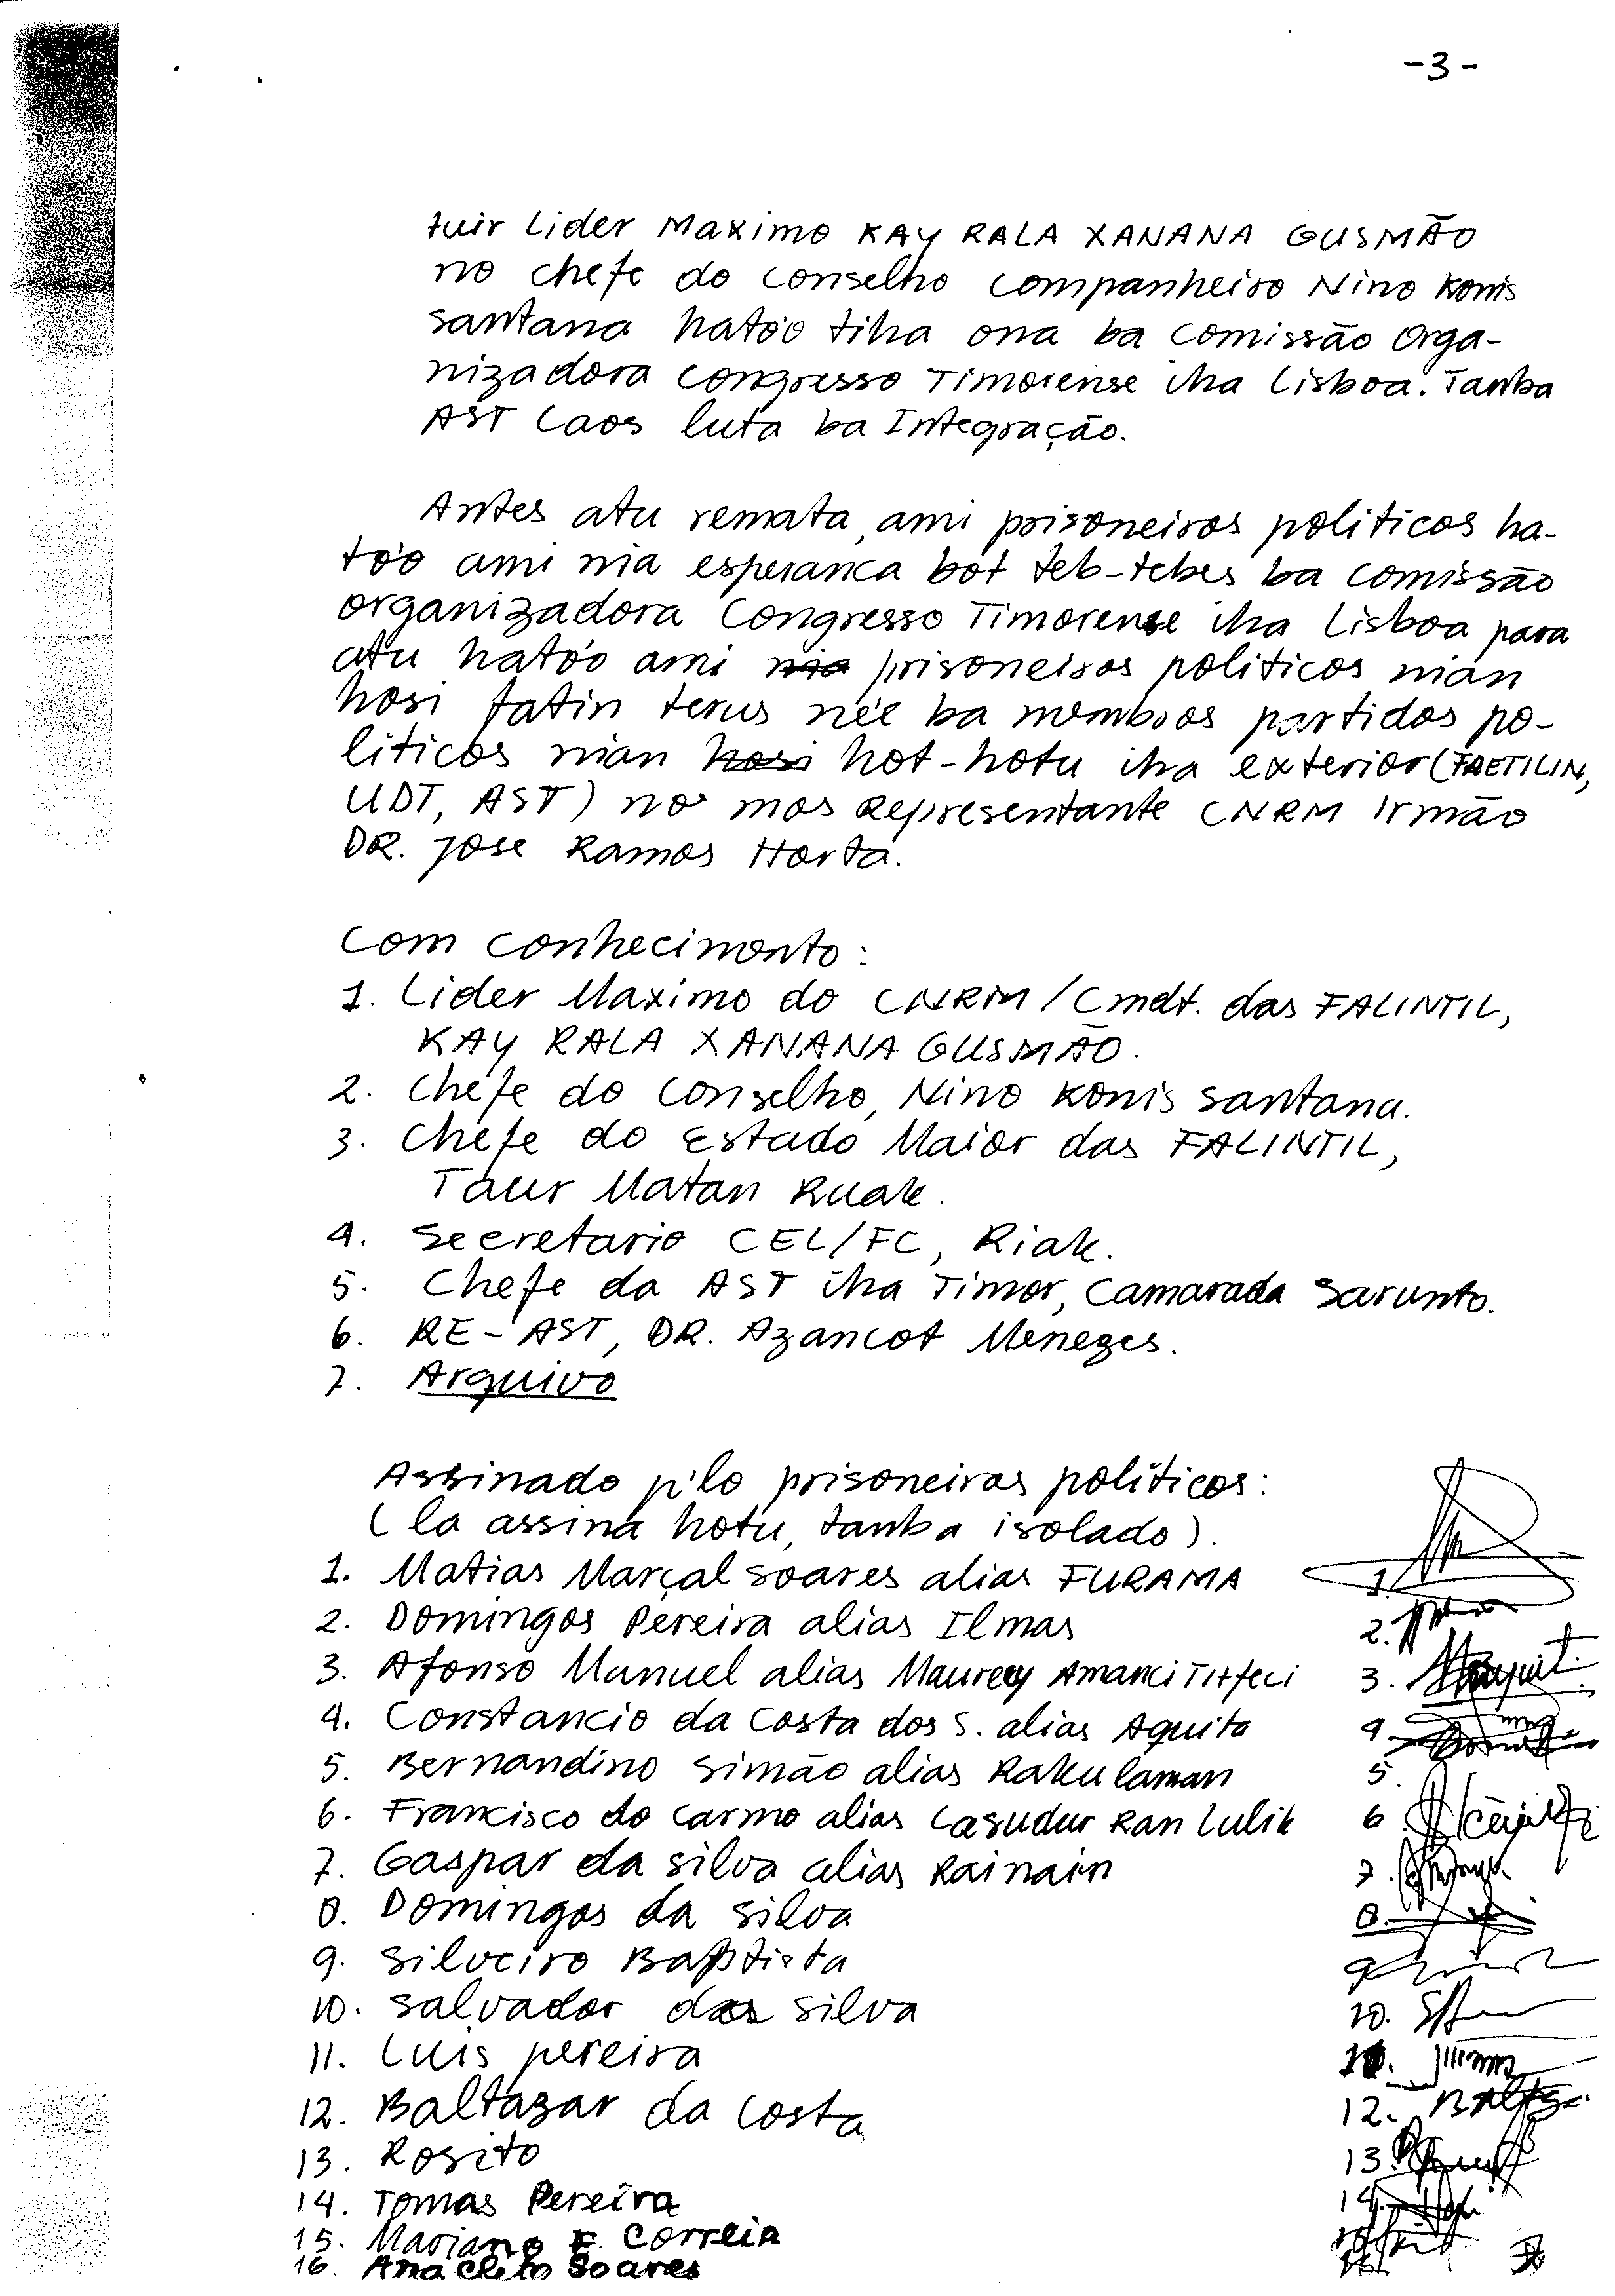 -3-
tuir Lider Maximo KAY RALA XANANA GUSMÃO
no chefe do conselho companheiro Nino Konis
santana hato'o tiha ona ba comissão orga-
nizadora congresso Timorense iha Lisboa. Tanba
AST Laos luta ba Integração.
Antes atu remata, ami prisoneiros politicos ha-
to'o ami nia esperanca bot teb-tebes ba comissão
organizadora Congresso Timorense iha Lisboa para
atu hato'o ami nia prisoneiros politicos nian
hosi fatin terus ne'e ba membros partidos po-
liticos nian hosi hot-hotu iha exterior (FRETILIN,
UDT, AST) no mos Representante CNRM Irmão
DR. Jose Ramos Horta.
Com conhecimento:
1. Lider Maximo do CNRM/Cmdt. das FALINTIL,
KAY RALA XANANA GUSMÃO.
2. Chefe do conselho, Nino Konis santana.
3. Chefe do Estado Maior das FALINTIL,
Taur Matan Ruak.
4. Secretario CEL/FC, Riak.
5. Chefe da AST iha Timor, Camarada Sarunto.
6. RE-AST, DR. Azancot Menezes.
7. Arquivo
Assinado p'lo prisoneiros politicos:
(la assina hotu, tanba isolado).
1. Matias Marçal soares alias FURAMA 1.
2. Domingos Pereira alias Ilmas 2.
3. Afonso Manuel alias 3.
4. Constancio da Costa dos S. alias Aquita 4.
5. Bernandino Simão alias Raku laman 5.
6. Francisco do carmo alias Casudur Ran Lulik 6
7. Gaspar da silva alias Rainain 7.
8. Domingos da silva 8.
9. Silveiro Baptista 9
10. Salvador das silva 10.
11. Luis pereira
12. Baltazar da costa 12.
13. Rosito 13.
14. Tomas Pereira 14.
15. Mariano F. Correia
16. Anacleto Soares